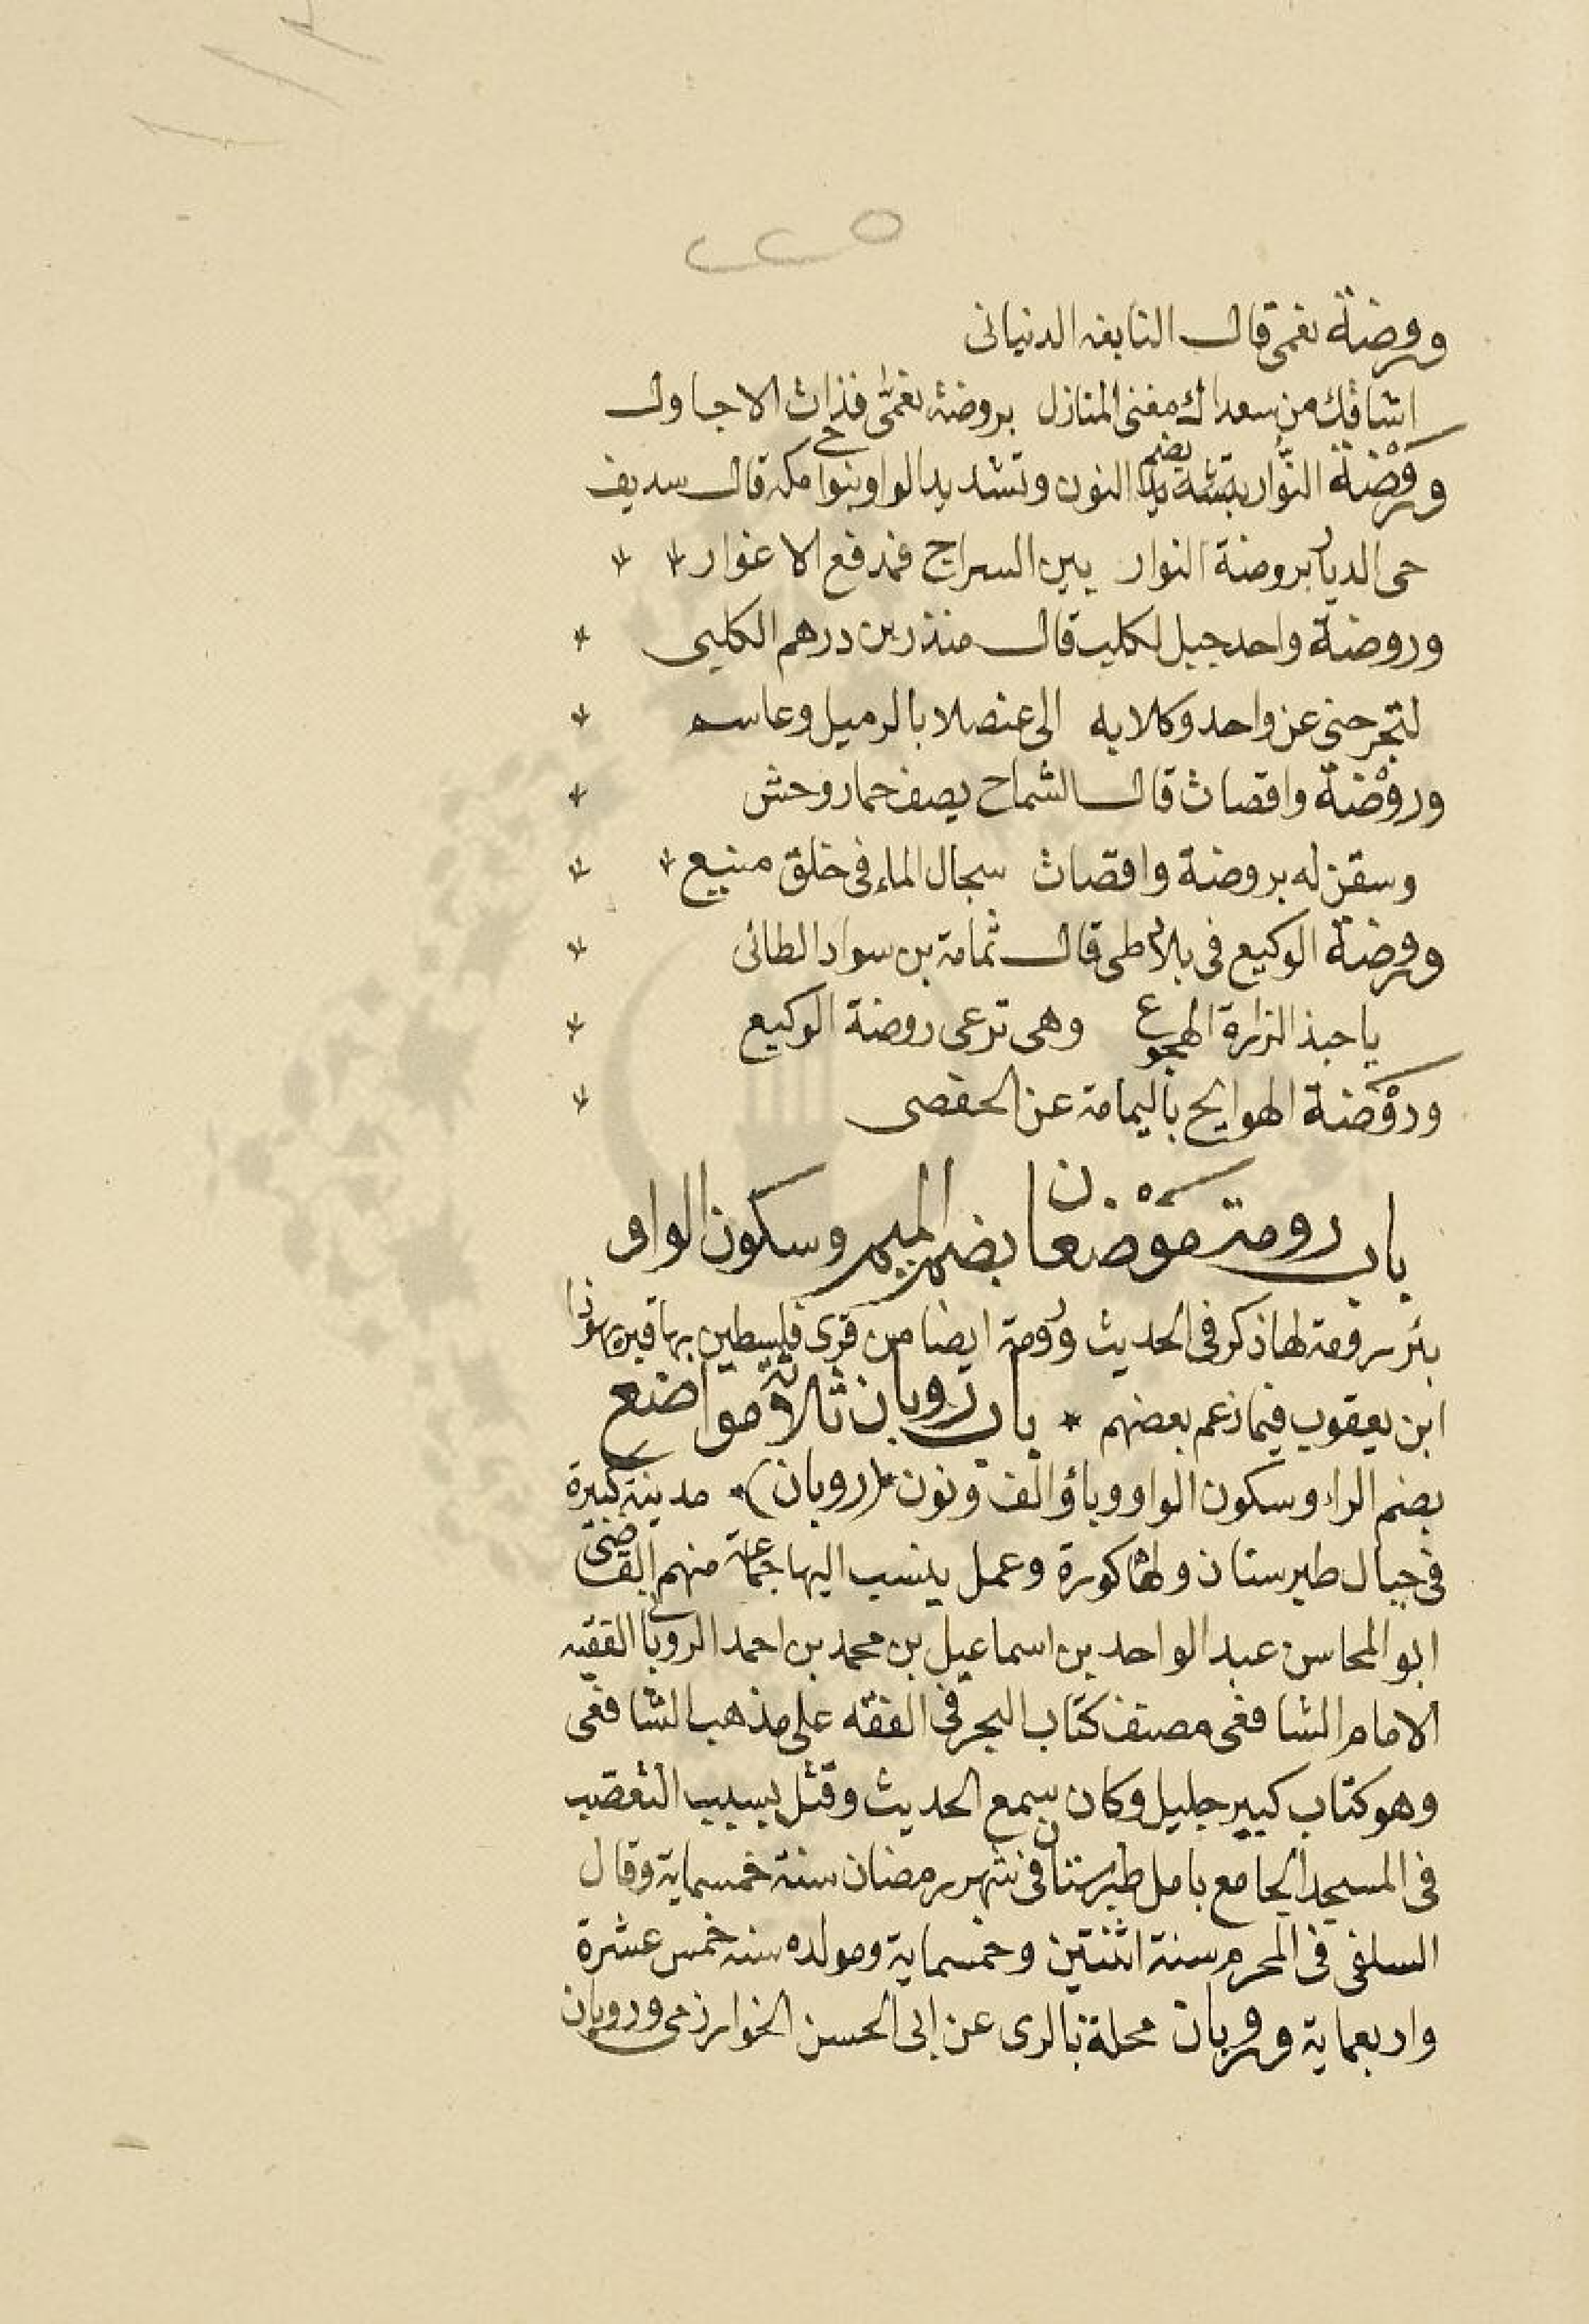 وروضة نعمى قال النابغة الدنيانى
اشاقك من سعداك مغنى المنازل بروضة نعمّى فذات الاجاول
وروْضة النُّوار بضم النون وتشديد الواو بنواحى مكة قال سديف
حى الديار بروضة النوار بين السراج فمدفع الاغوار
وروضة واحد جبل لكليب قال منذر بن درهم الكلبى
لتجرحنى عن واحد وكلابه الى عنصلا بالرميل وعاسم
وروْضة واقصات قال الشماح يصف حمار وحش
وسقن له بروضة واقصات سجال الماء فى حلق منيع
وروضة الوكيع فى بلاد طى قال ثمامة بن سواد الطائى
ياحبذا لزارة الهجوع وهى ترعى روضة الوكيع
وروْضة الهوايج باليمامة عن الحفصى
باب رومة موْضعان بضم الميم وسكون الواو
بئر رومة لها ذكر فى الحديث ورُومة ايضا من قرى فلسطين بها قبر يهوذا
ابن يعقوب فيما زعم بعضهم * باب روبان ثلاثة مواضع
بضم الراء وسكون الواو وباؤ الف ونون (روبان) مدينة كبيرة
فى جبال طبرستان ولها كورة وعمل ينسب اليها جماعة منهم القاضى
ابو المحاسن عبد الواحد بن اسماعيل بن محمد بن احمد الروبانى الفقيه
الامام الشافعى مصنف كتاب البحر فى الفقه على مذهب الشافعى
وهو كتاب كبير جليل وكان سمع الحديث وقتل بسبب التعصّب
فى المسجد الجامع بامل طبرستان فى شهر رمضان سنة خمسماية وقال
السلفى فى المحرم سنة اثنتين وخمسماية ومولده سنة خمس عشرة
واربعماية وروبان محلة بالرى عن ابى الحسن الخوارزمى وروبان